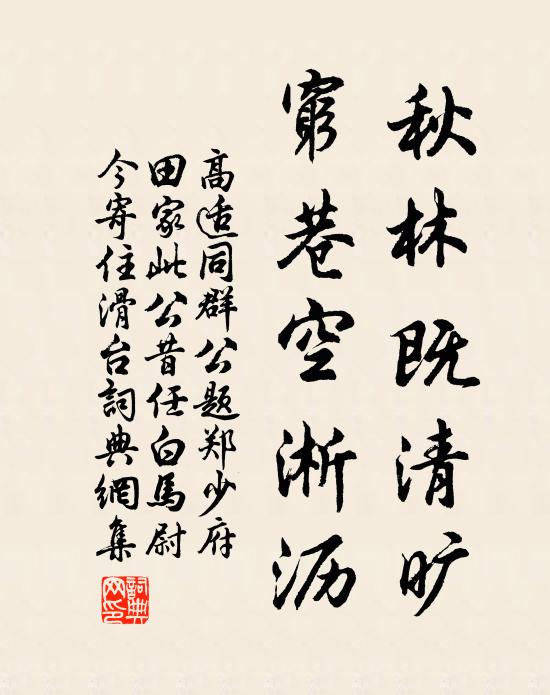 秋林既清旷
窮巷空淅沥
高适同群公题郑少府
田家此公昔任白馬尉
今寄住滑台詞典網集
詞典网印